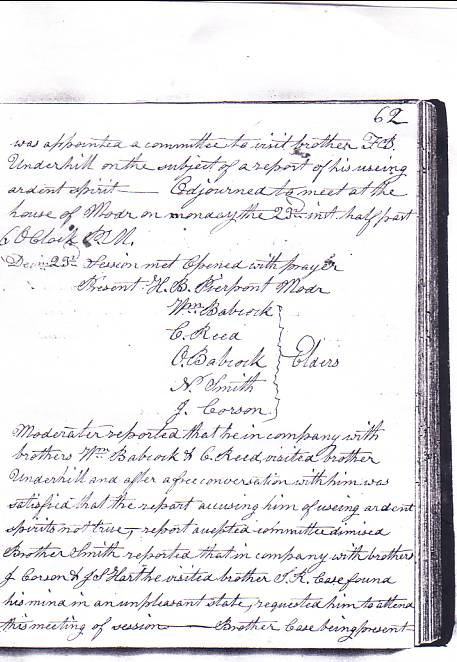 62
was appointed a committee to visit brother F.B.
Underhill on the subject of a report of his useing
ardent spirit — Adjourned to meet at the
house of Modr on monday the 23d inst. half past
6 OClock P.M.
Decm 23d Session met Opened with prayer
Present H. B. Pierpont Modr
Wm Babcock
C. Reed
O. Babcock
N. Smith
J. Corson
Elders
Moderater reported that he in company with
brothers Wm Babcock & C. Reed, visited brother
Underhill and after a free conversation with him was
satisfied that the report accusing him of useing ardent
spirits not true, – report accepted committee dimised
Brother Smith reported that in company with brothers
J. Corson & J S Hart he visited brother S. R. Case found
his mind in an unpleasant state, requested him to attend
this meeting of session — Brother Case being present